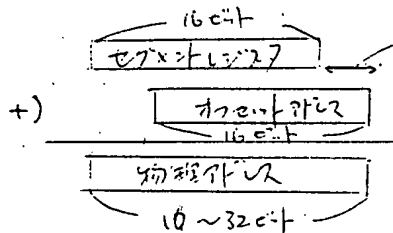 16ビット
セグメントレジスタ
+)
オフセットアドレス
16ビット
物理アドレス
16〜32ビット